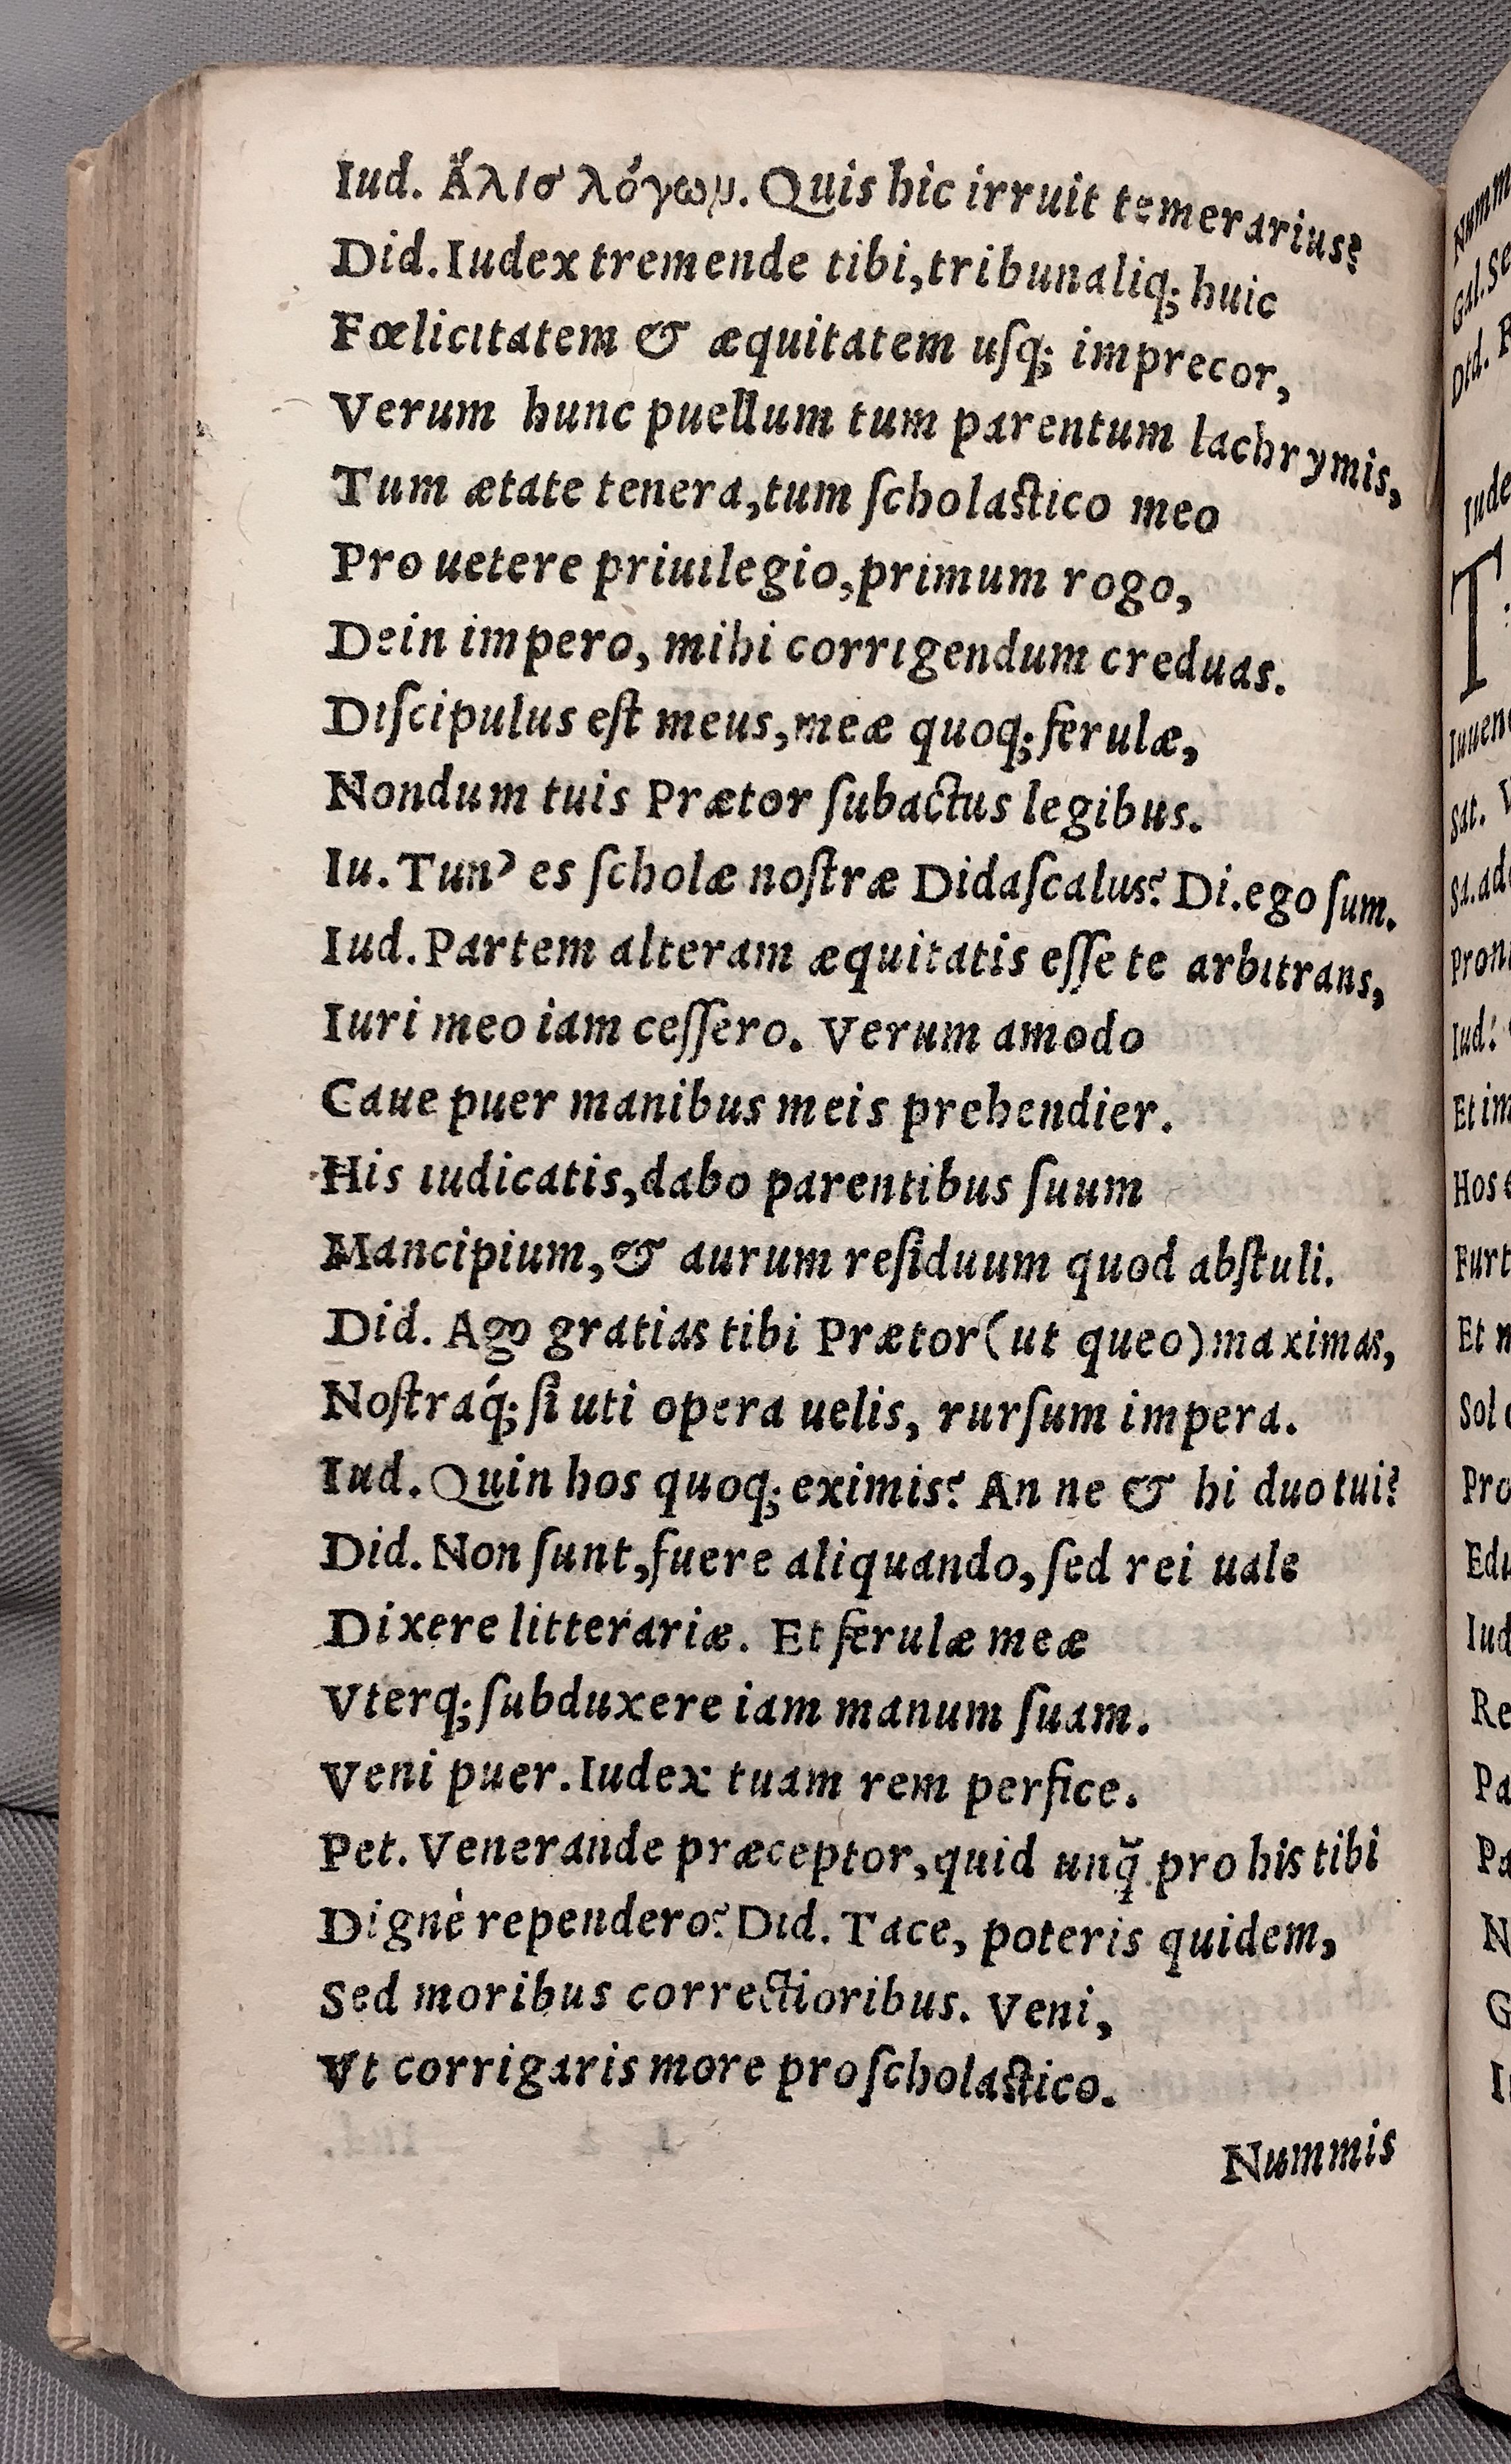 Iud. Ἅλισ λόγων. Quis hic irruit temerarius?
Did. Iudex tremende tibi, tribunaliq; huic
Fœlicitatem & æquitatem uſq; imprecor,
Verum hunc puellum tum parentum lachrymis,
Tum ætate tenera, tum ſcholaſtico meo
Pro uetere priuilegio, primum rogo,
Dein impero, mihi corrigendum creduas.
Diſcipulus eſt meus, meæ quoq; ferulæ,
Nondum tuis Prætor ſubactus legibus.
Iu. Tun' es ſcholæ noſtræ Didaſcalus? Di. ego ſum.
Iud. Partem alteram æquitatis eſſe te arbitrans,
Iuri meo iam ceſſero. Verum amodo
Caue puer manibus meis prehendier.
His iudicatis, dabo parentibus ſuum
Mancipium, & aurum reſiduum quod abſtuli.
Did. Ago gratias tibi Prætor (ut queo) maximas,
Noſtraq́; ſi uti opera uelis, rurſum impera.
Iud. Quin hos quoq; eximis? An ne & hi duo tui?
Did. Non ſunt, fuere aliquando, ſed rei uale
Dixere litterariæ. Et ferulæ meæ
Vterq; ſubduxere iam manum ſuam.
Veni puer. Iudex tuam rem perfice.
Pet. Venerande præceptor, quid unq̃ pro his tibi
Dignè rependero? Did. Tace, poteris quidem,
Sed moribus correctioribus. Veni,
Vt corrigaris more pro ſcholaſtico.
Nummis
Iuuen
Sat.
Iud:
Et im
Hos
Furt
Et
Sol
Pro
Edu
Iud
Re
Pa
Pa
N
G